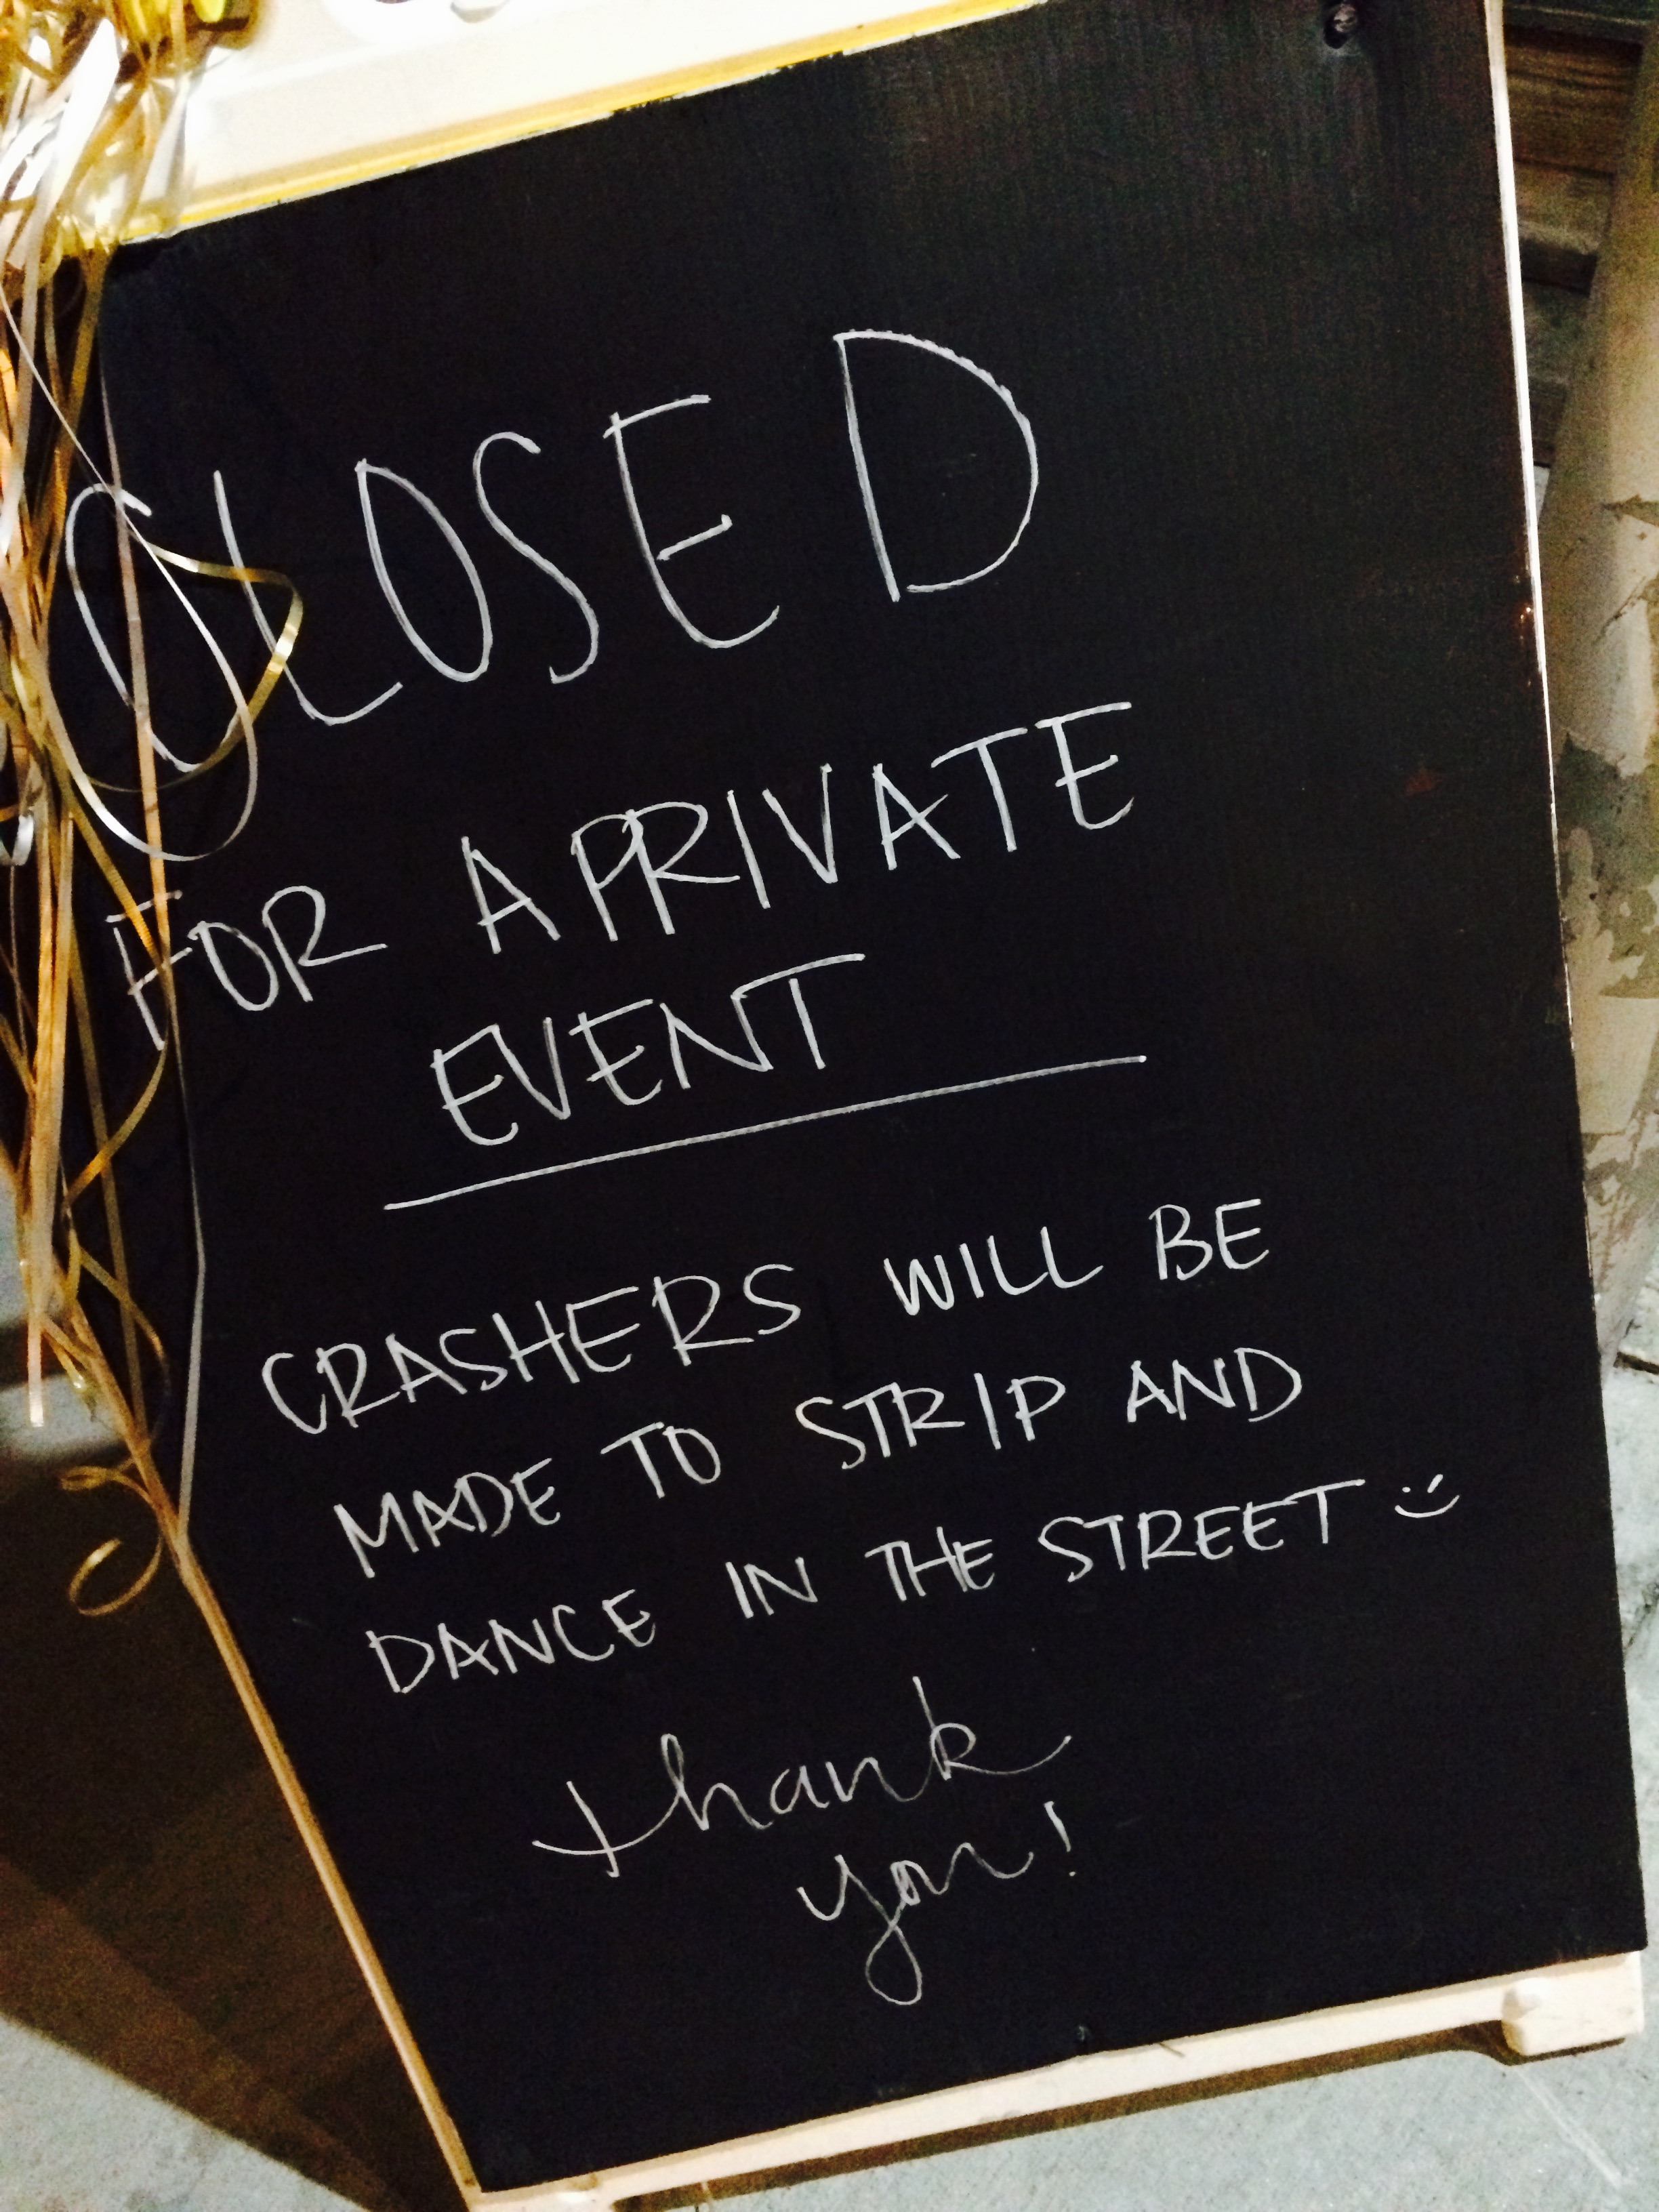 CLOSED
FOR A PRIVATE
EVENT
CRASHERS WILL BE
MADE TO STRIP AND
DANCE IN THE STREET :)
thank
you!